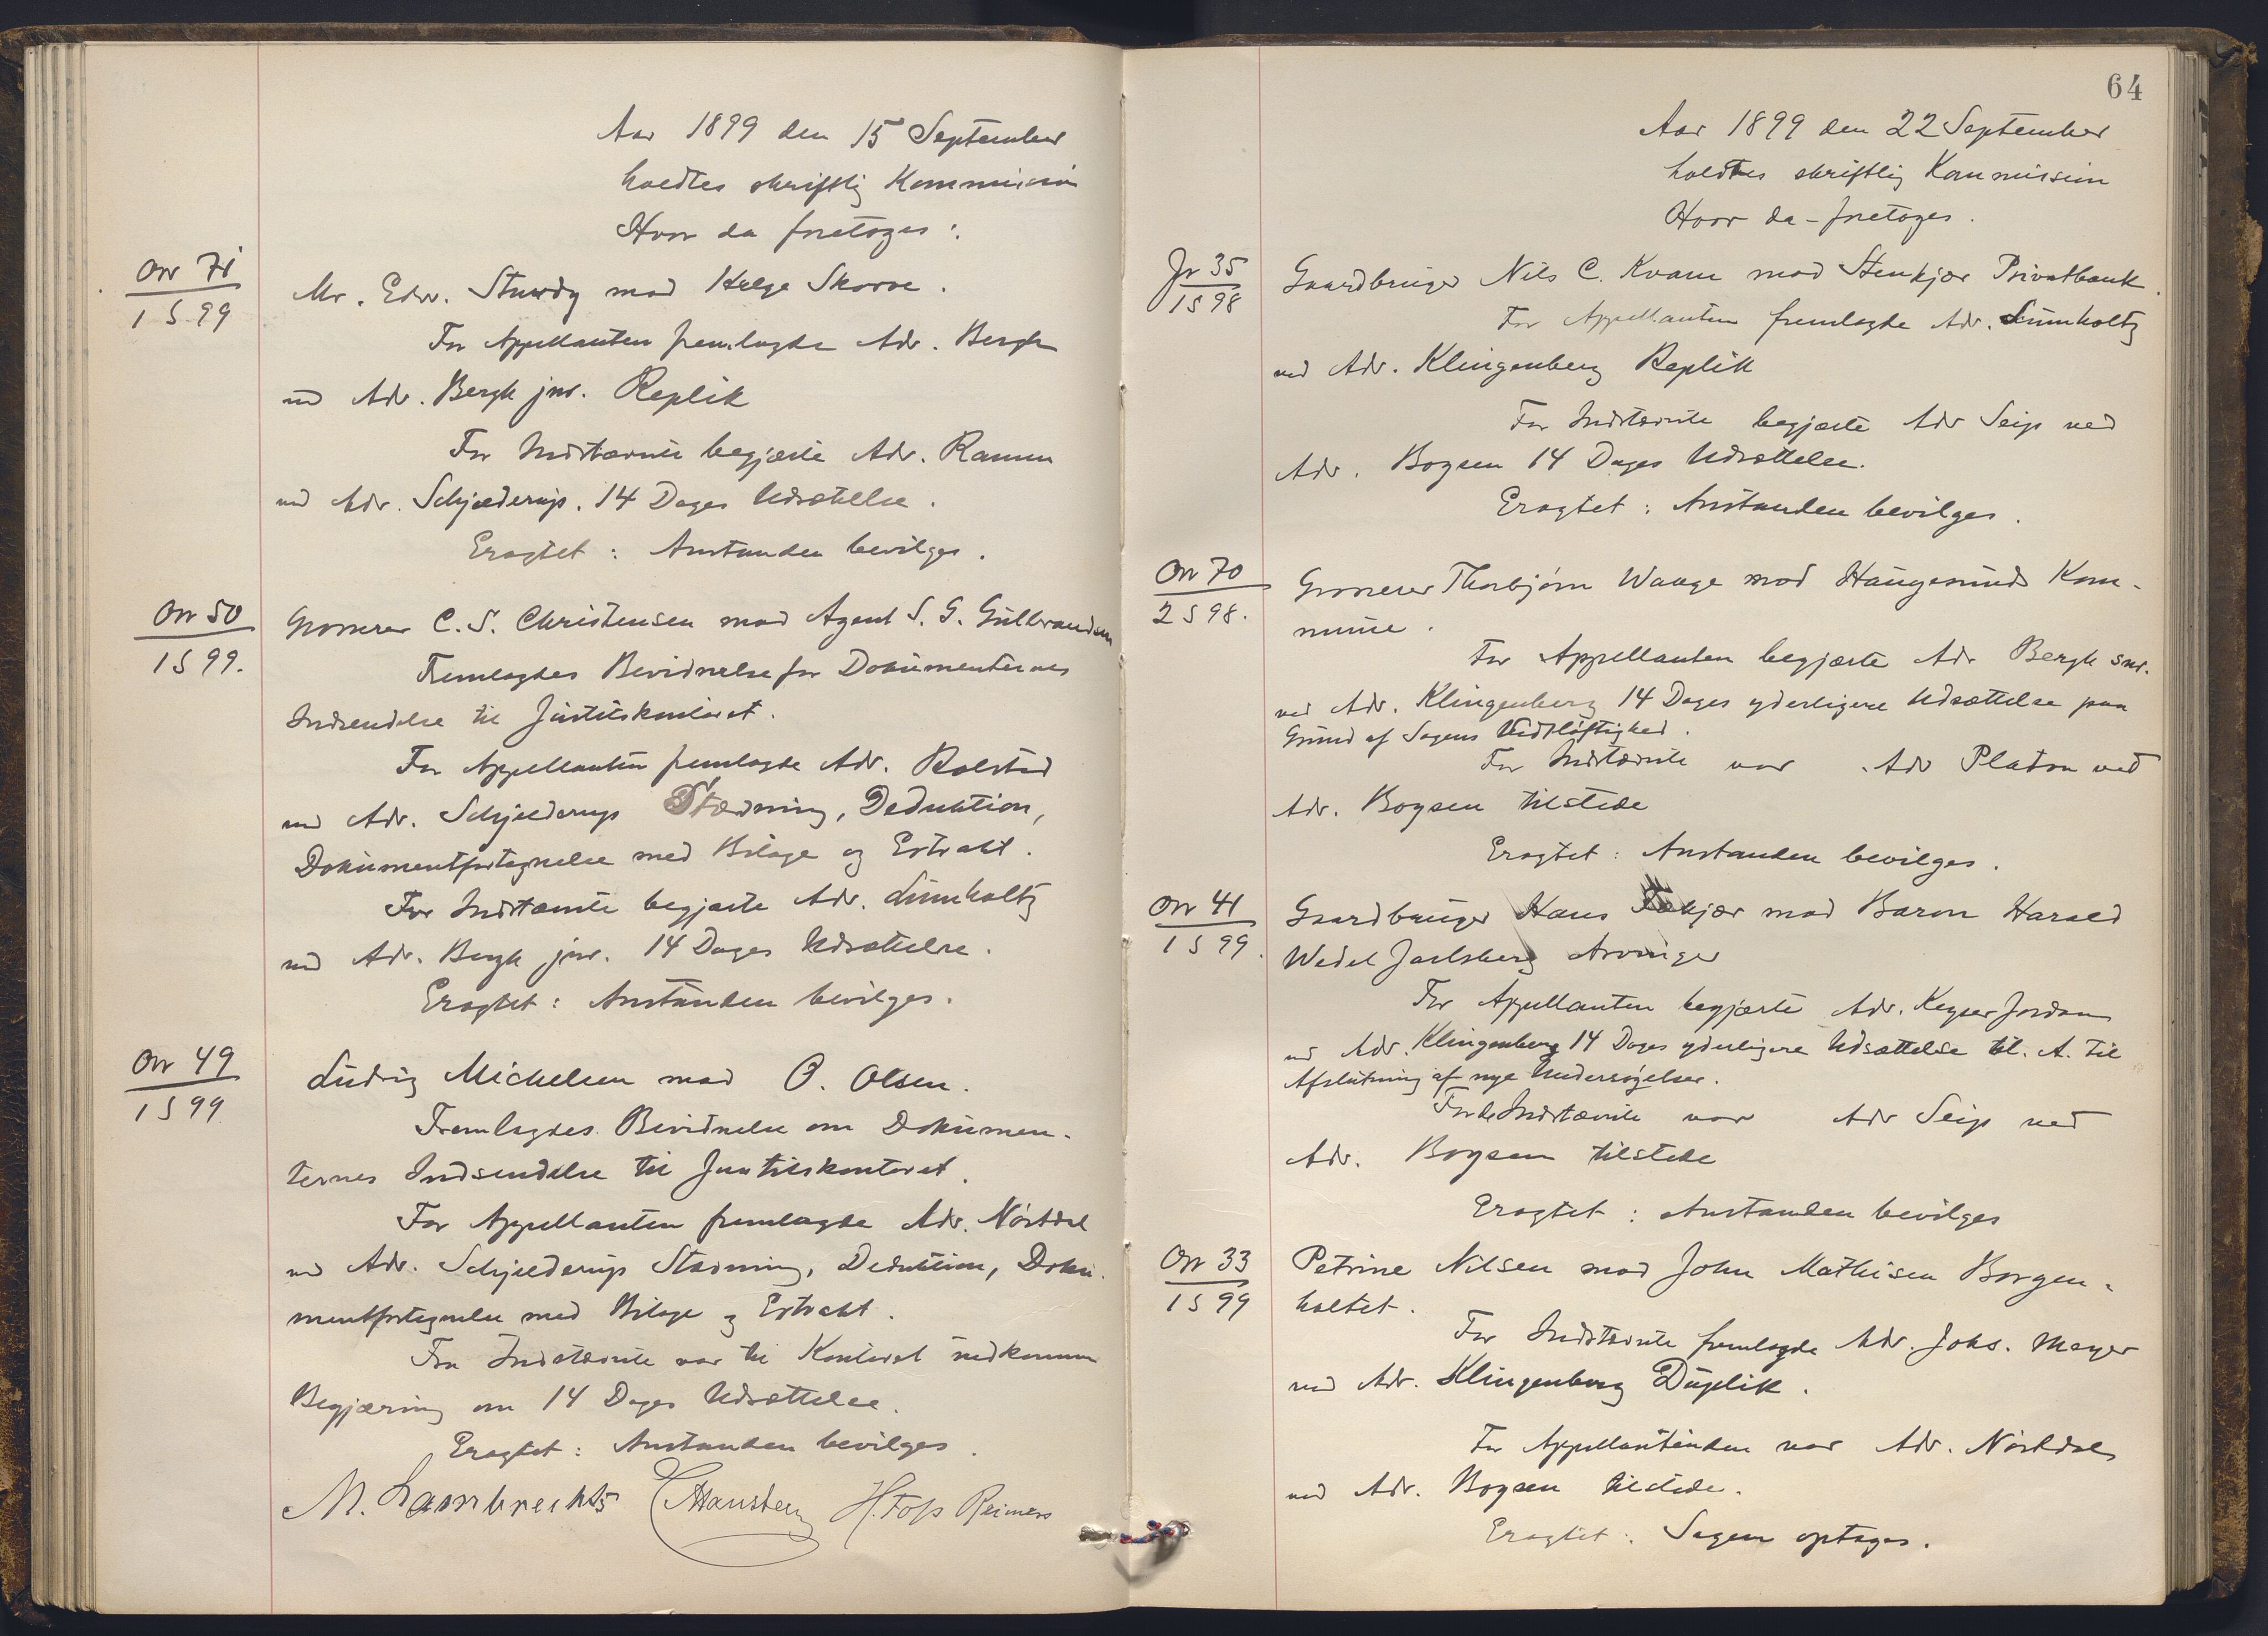 Aar 1899 den 15 September
holdtes skriftlig Kommission
Hvor da foretoges:
Or 71
1 S 99
Mr. Edw. Sturdy mod Helge Skorve.
For Appellanten fremlagde Adv. Bergh
ved Adv. Bergh jnr. Replik
For Indstævnte begjærte Adv. Ramm
ved Adv. Schjelderup. 14 Dages Udsættelse.
Eragtet: Anstanden bevilges.
Or 50
1 S 99.
Grosserer C. S. Christensen mod Agent S. G. Gulbrandsen
Fremlagdes Bevidnelse for Dokumenternes
Indsendelse til Justitskontoret.
For Appellanten fremlagde Adv. Rolstad
ved Adv. Schjelderup Stævning, Deduktion,
Dokumentfortegnelse med Bilage og Extrakt.
For Indstævnte begjærte Adv. Lumholtz
ved Adv. Bergh jnr. 14 Dages Udsættelse.
Eragtet: Anstanden bevilges.
Or 49
1 S 99
Ludvig Michelsen mod O. Olsen.
Fremlagdes Bevidnelse om Dokumen-
ternes Indsendelse til Justitskontoret.
For Appellanten fremlagde Adv. Nørdal
ved Adv. Schjelderup Stævning, Deduktion, Doku-
mentfortegnelse med Bilage og Extrakt.
Fra Indstævnte var til Kontoret indkommen
Begjæring om 14 Dages Udsættelse.
Eragtet: Anstanden bevilges.
M. Lambrechts C Hansteen H. Foss Reimers
64
Aar 1899 den 22 September
holdtes skriftlig Kommission
Hvor da foretoges.
Jr 35
1 S 98
Gaardbruger Nils C. Kvam mod Stenkjær Privatbank.
For Appellanten fremlagde Adv. Lumholtz
ved Adv. Klingenberg Replik
For Indstævnte begjærte Adv Seip ved
Adv. Boysen 14 Dages Udsættelse.
Eragtet: Anstanden bevilges.
Or 70
2 S 98.
Grosserer Thorbjørn Waage mod Haugesunds Kom-
mune.
For Appellanten begjærte Adv Bergh snr.
ved Adv. Klingenberg 14 Dages yderligere Udsættelse paa
Grund af Sagens Vidtløftighed.
For Indstævnte var Adv Platou ved
Adv. Boysen tilstede
Eragtet: Anstanden bevilges.
Or 41
1 S 99.
Gaardbruger Hans mod Baron Harald
Wedel Jarlsberg Arvinger
For Appellanten begjærte Adv. Keyser Jordan
ved Adv. Klingenberg 14 Dages yderligere Udsættelse bl. A. til
Afslutning af nye Undersøgelser.
For de Indstævnte var Adv Seip ved
Adv. Boysen tilstede
Eragtet: Anstanden bevilges
Or 33
1 S 99
Petrine Nilsen mod John Mathisen Borgen-
holtet.
For Indstævnte fremlagde Adv. Johs. Meyer
ved Adv. Klingenberg Duplik.
For Appellantinden var Adv. Nørdal
ved Adv. Boysen tilstede.
Eragtet: Sagen optages.